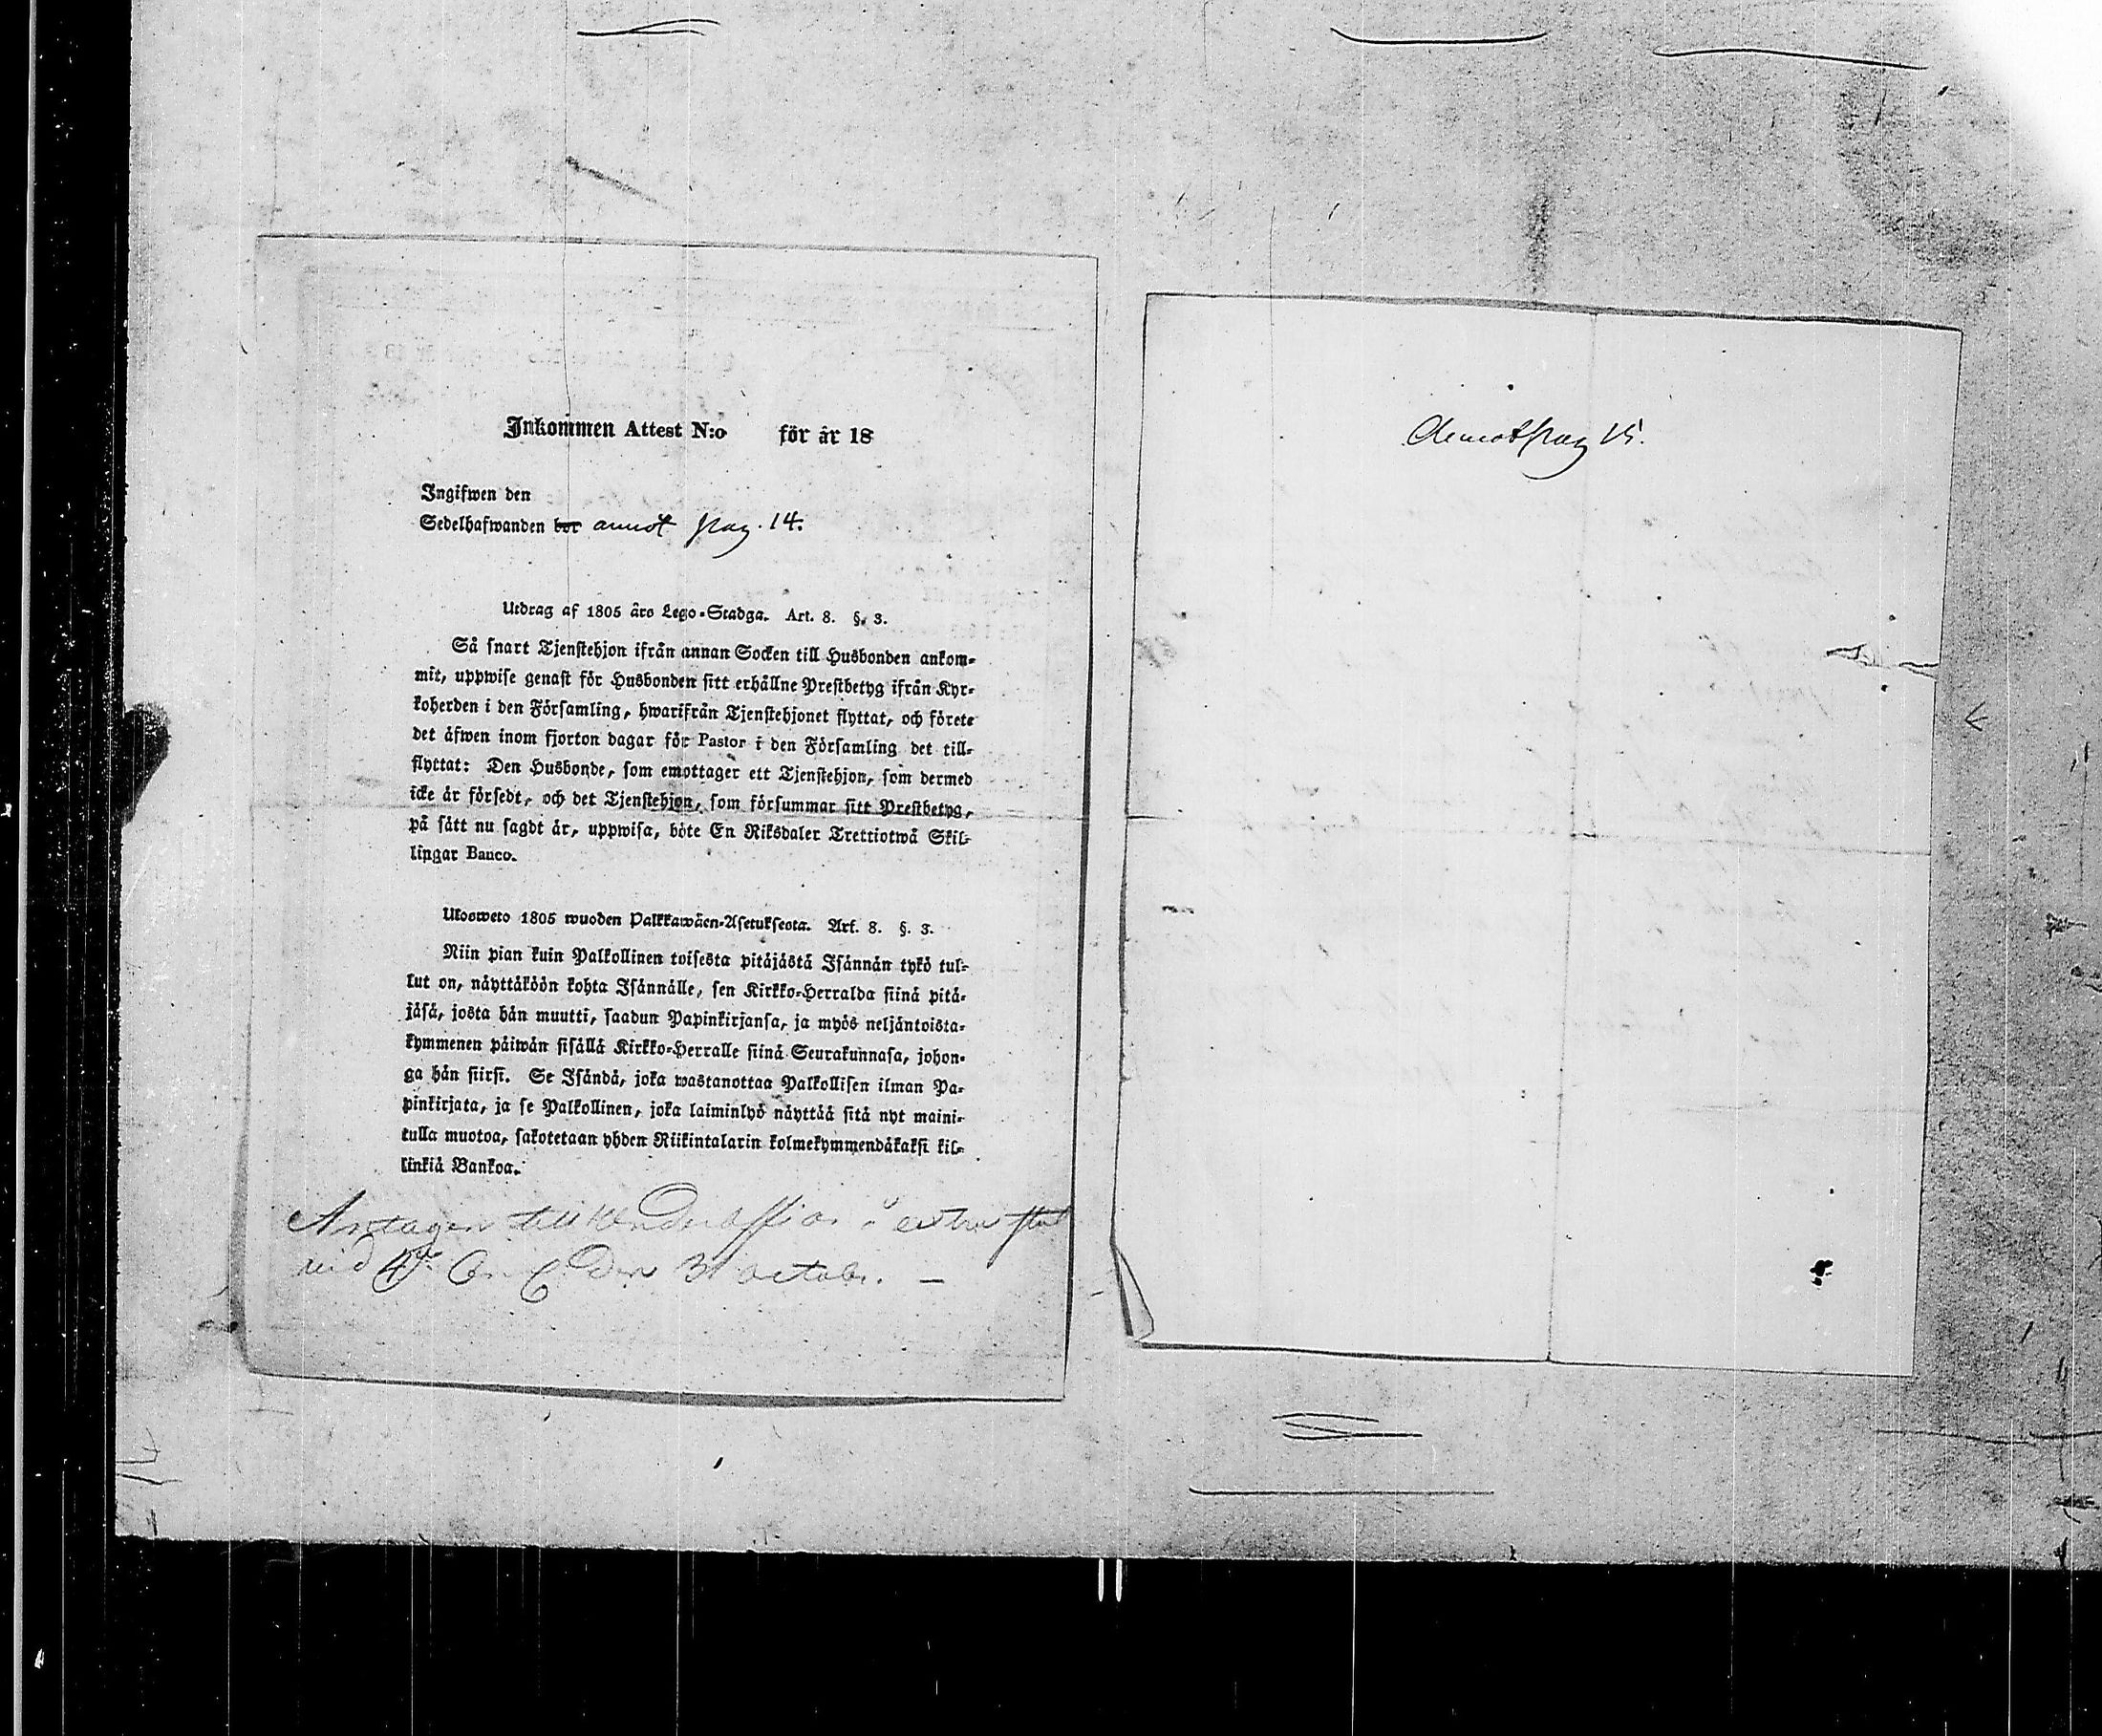 Inkommen Attest N:o för år 18
Ingifwen den
Sedelhafwanden bor annot pag. 14.
Utdrag af 1805 års Lego-Stadga. Art. 8. §. 3.
Så snart Tjenstehjon ifrån annan Socken till Husbonden ankom-
mit, uppwise genast för Husbonden sitt erhållne Prestbetyg ifrån Kyr-
koherden i den Församling, hwarifrån Tjenstehjonet flyttat, och förete
det äfwen inom fjorton dagar för Pastor i den Församling det till-
flyttat: Den Husbonde, som emottager ett Tjenstehjon, som dermed
icke är försedt, och det Tjenstehjon, som försummar sitt Prestbetyg,
på sätt nu sagdt är, uppwisa, böte En Riksdaler Trettiotwå Skil-
lingar Banco.
Ulosweto 1805 wuoden Palkkawäen-Asetuksesta. Art. 8. §. 3.
Niin pian kuin Palkollinen toisesta pitäjästä Isännän tykö tul-
lut on, näyttäköön kohta Isännälle, sen Kirkko-Herralda siinä pitä-
jäsä, josta hän muutti, saadun Papinkirjansa, ja myös neljäntoista-
kymmenen päiwän sisällä Kirkko-Herralle siinä Seurakunnasa, johon-
ga hän siirsi. Se Isändä, joka wastanottaa Palkollisen ilman Pa-
pinkirjata, ja se Palkollinen, joka laiminlyö näyttää sitä nyt maini-
tulla muotoa, sakotetaan yhden Riikintalarin kolmekymmendäkaksi kil-
linkiä Bankoa.
Antagen till Underofficer å extra stat
vid den 31 octobr. —
Annot pag 15.